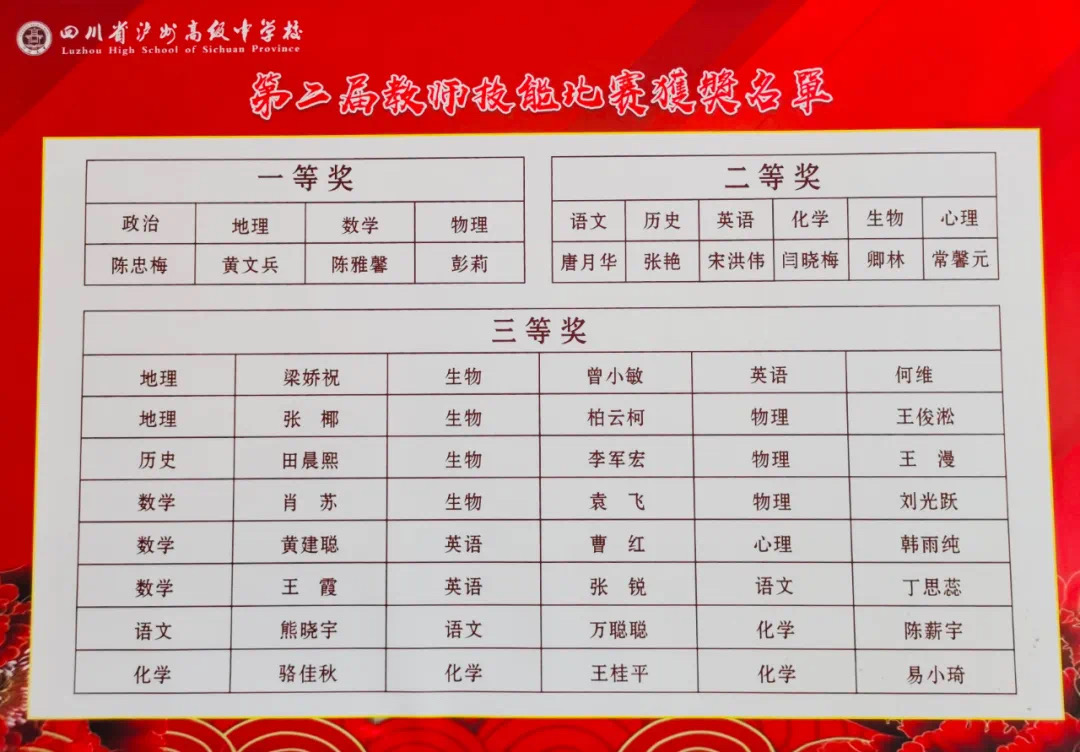 四川省泸州高级中学校
Luzhou High School of Sichuan Province
第二届教师技能比赛獲獎名單
一等奖
政治 地理 数学 物理
陈忠梅 黄文兵 陈雅馨 彭莉
二等奖
语文 历史 英语 化学 生物 心理
唐月华 张艳 宋洪伟 闫晓梅 卿林 常馨元
三等奖
地理 梁娇祝 生物 曾小敏 英语 何维
地理 张 椰 生物 柏云柯 物理 王俊淞
历史 田晨熙 生物 李军宏 物理 王 漫
数学 肖 苏 生物 袁 飞 物理 刘光跃
数学 黄建聪 英语 曹 红 心理 韩雨纯
数学 王 霞 英语 张 锐 语文 丁思蕊
语文 熊晓宇 语文 万聪聪 化学 陈薪宇
化学 骆佳秋 化学 王桂平 化学 易小琦